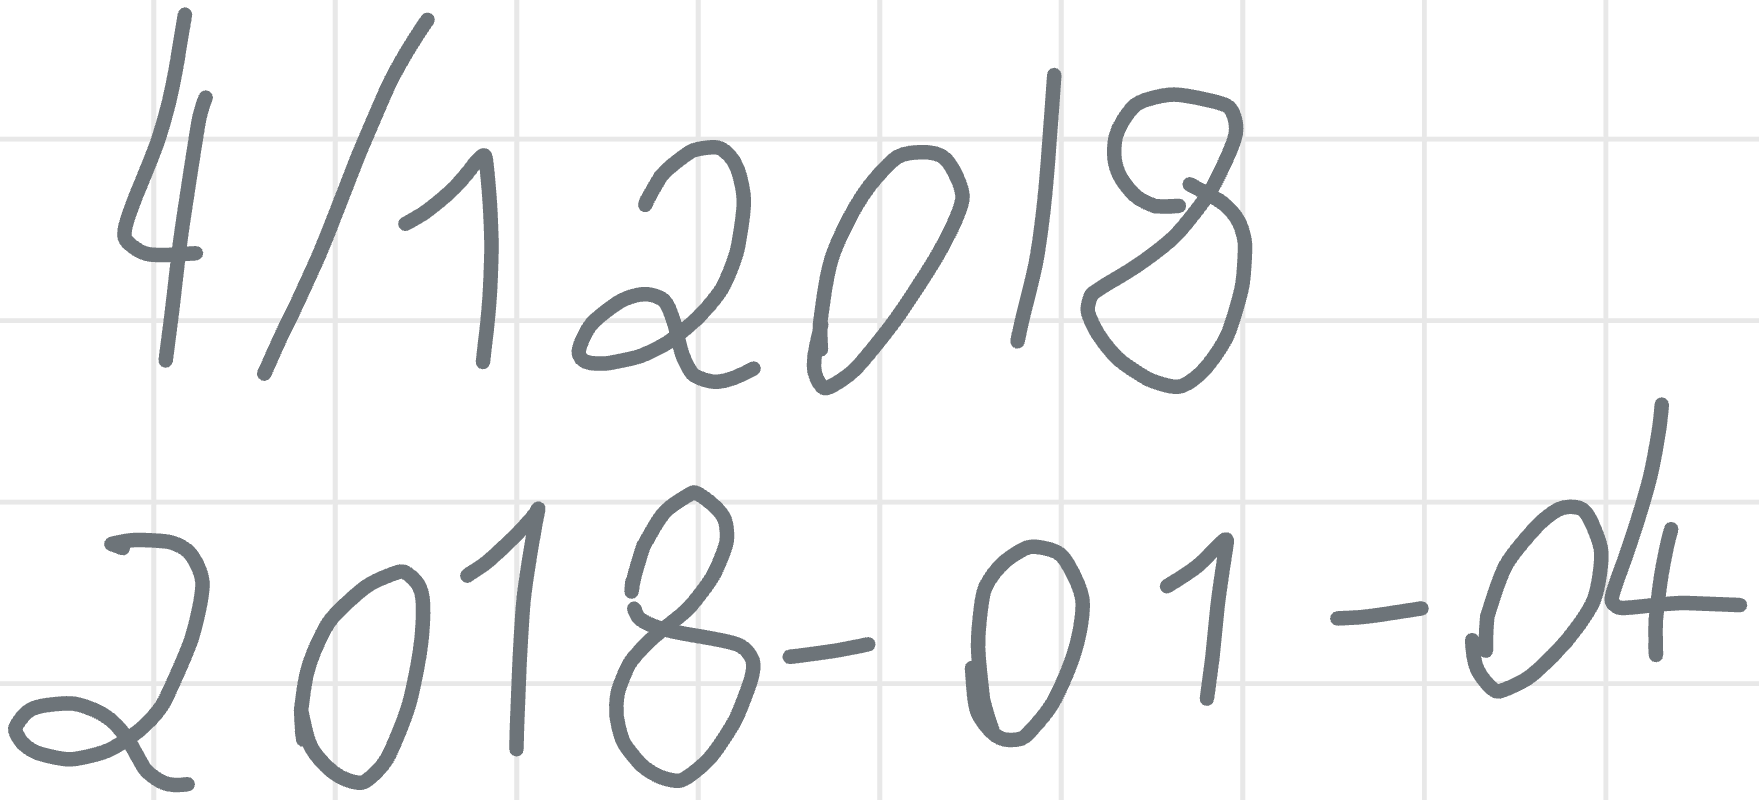 4/1 2018
2018-01-04